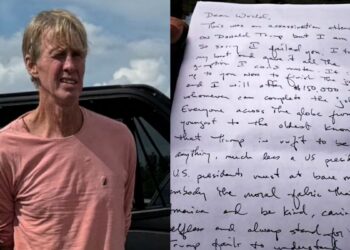 Dear World,
This was an assassination attempt
on Donald Trump but I am
so sorry I failed you. I t
my best and gave it all the
gumption I could muster. It
up to you now to finish the
and I will offer $150,000
whomever can complete the j
Everyone across the globe from
youngest to the oldest know
that Trump is unfit to be
anything, much less a US presi
U.S. presidents must at bare m
embody the moral fabric tha
america and be kind, carin
selfless and always stand for
Trump fails to understa